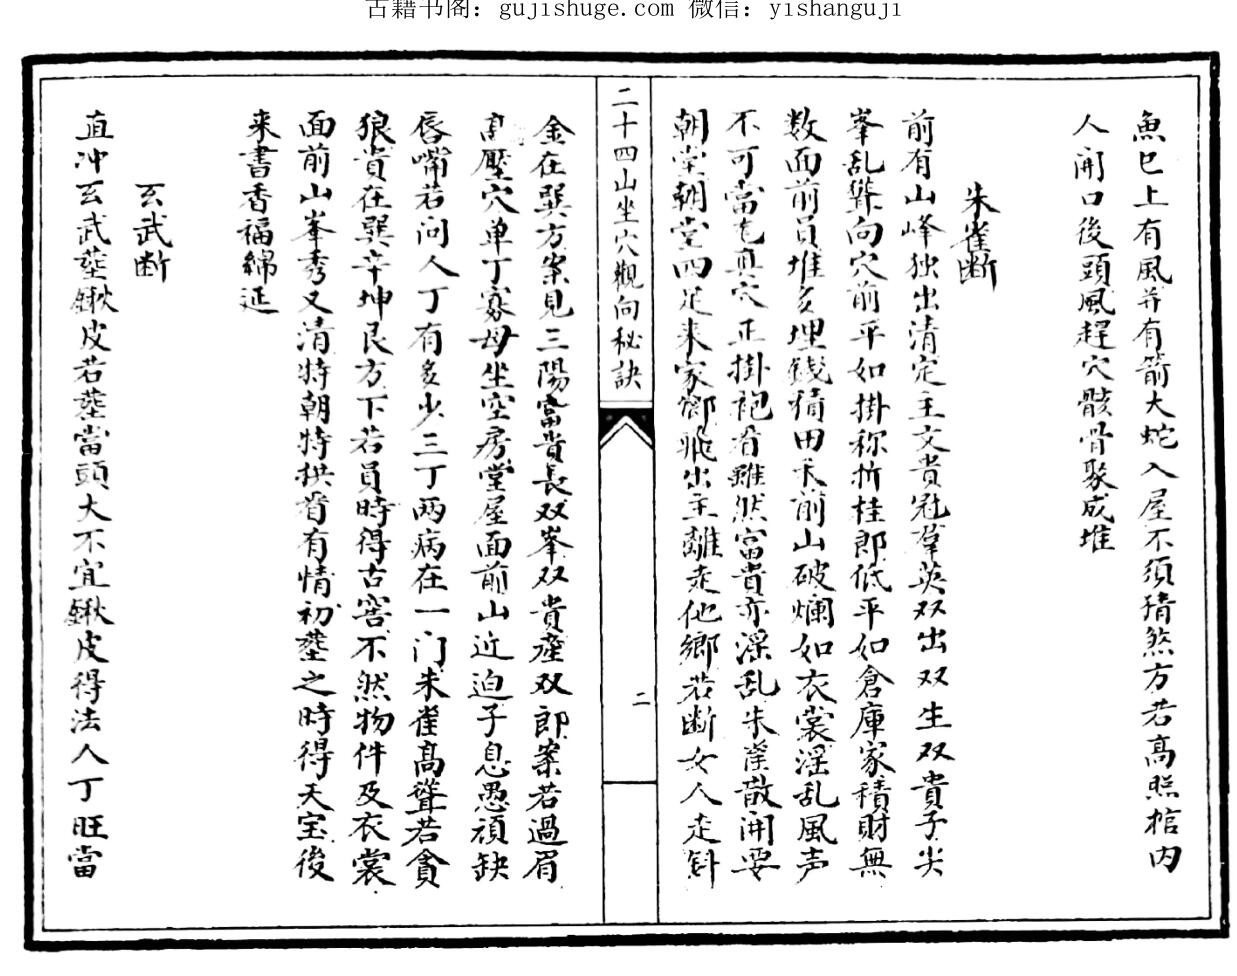 古籍书阁：gujishuge.com 微信：yishanguji
魚巳上有風并有箭大蛇入屋不須猜煞方若高照棺内
人開口後頭風趕穴骸骨聚成堆
朱雀断
前有山峰独出清定主文貴冠群英双出双生双貴子尖
峯乱聳向穴前平如掛称折桂郎低平如倉庫家積財無
数面前員堆多埋錢猜田禾前山破爛如衣裳淫乱風声
不可當 真穴正掛袍看雖然富貴亦淫乱朱雀散開要
朝堂朝堂四足来家鄉飛出主離走他鄉若断女人走斜
二十四山坐穴觀向秘訣
二
金在巽方案見三陽富貴長双峯双貴産双郎案若過眉
高壓穴单丁寡母坐空房堂屋面前山近迫子息愚頑缺
唇嘴若问人丁有多少三丁两病在一门朱雀高聳若貪
狼貴在巽辛坤艮方下若員時得古窖不然物件及衣裳
面前山峯秀又清特朝特拱肯有情初塟之時得天宝後
来書香福綿延
玄武断
直冲玄武塟鍬皮若塟當頭大不宜鍬皮得法人丁旺當